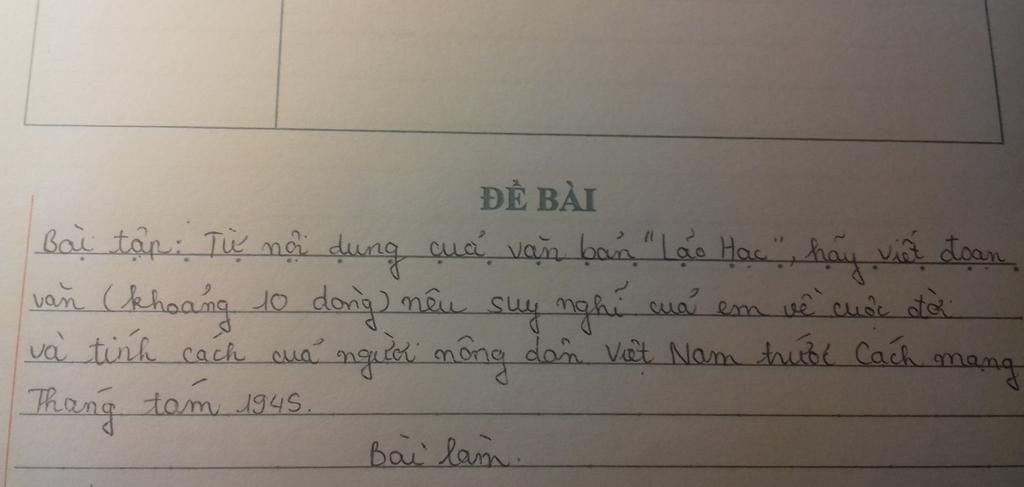 ĐỀ BÀI
Bài tập: Từ nội dung của văn bản "Lão Hạc", hãy viết đoạn
văn (khoảng 10 dòng) nêu suy nghĩ của em về cuộc đời
và tính cách của người nông dân Việt Nam trước Cách mạng
Tháng tám 1945.
Bài làm.